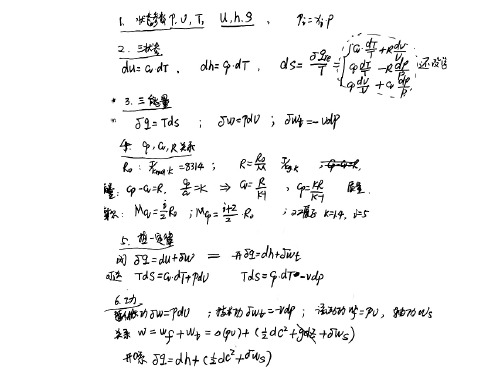 1. 状态参数 P, U, T, U, h, S, Pi = xi·P
2. 三状态
du = Cv·dT, dh = Cp·dT, ds = δqRe/T = { Cv·dT/T + R dv/v
Cp dT/T − R dp/p
Cp dv/v + Cv dp/p
3. 三能量
δq = Tds ; δw = Pdv ; δwt = −vdp
4. Cp, Cv, R 关系
R0: J/kmol·k = 8314 ; R = R0/M J/kg·k
Cp − Cv = R, Cp/Cv = K ⇒ Cv = R/K-1, Cp = KR/K-1
MCv = i/2 R0 ; MCp = i+2/2 · R0 ; K=1.4, i=5
5.
闭 δq = du + δw = 开 δq = dh + δwt
可逆 Tds = Cv·dT + Pdv Tds = Cp·dT − vdp
6. 功
功 δw = Pdv ; 技术功 δwt = −vdp ; 流动功 wf = pv, 轴功 ws
关系 w = wf + wt = Δ(pv) + (½dc² + gdz + δws)
开系 δq = dh + (½dc² + δws)